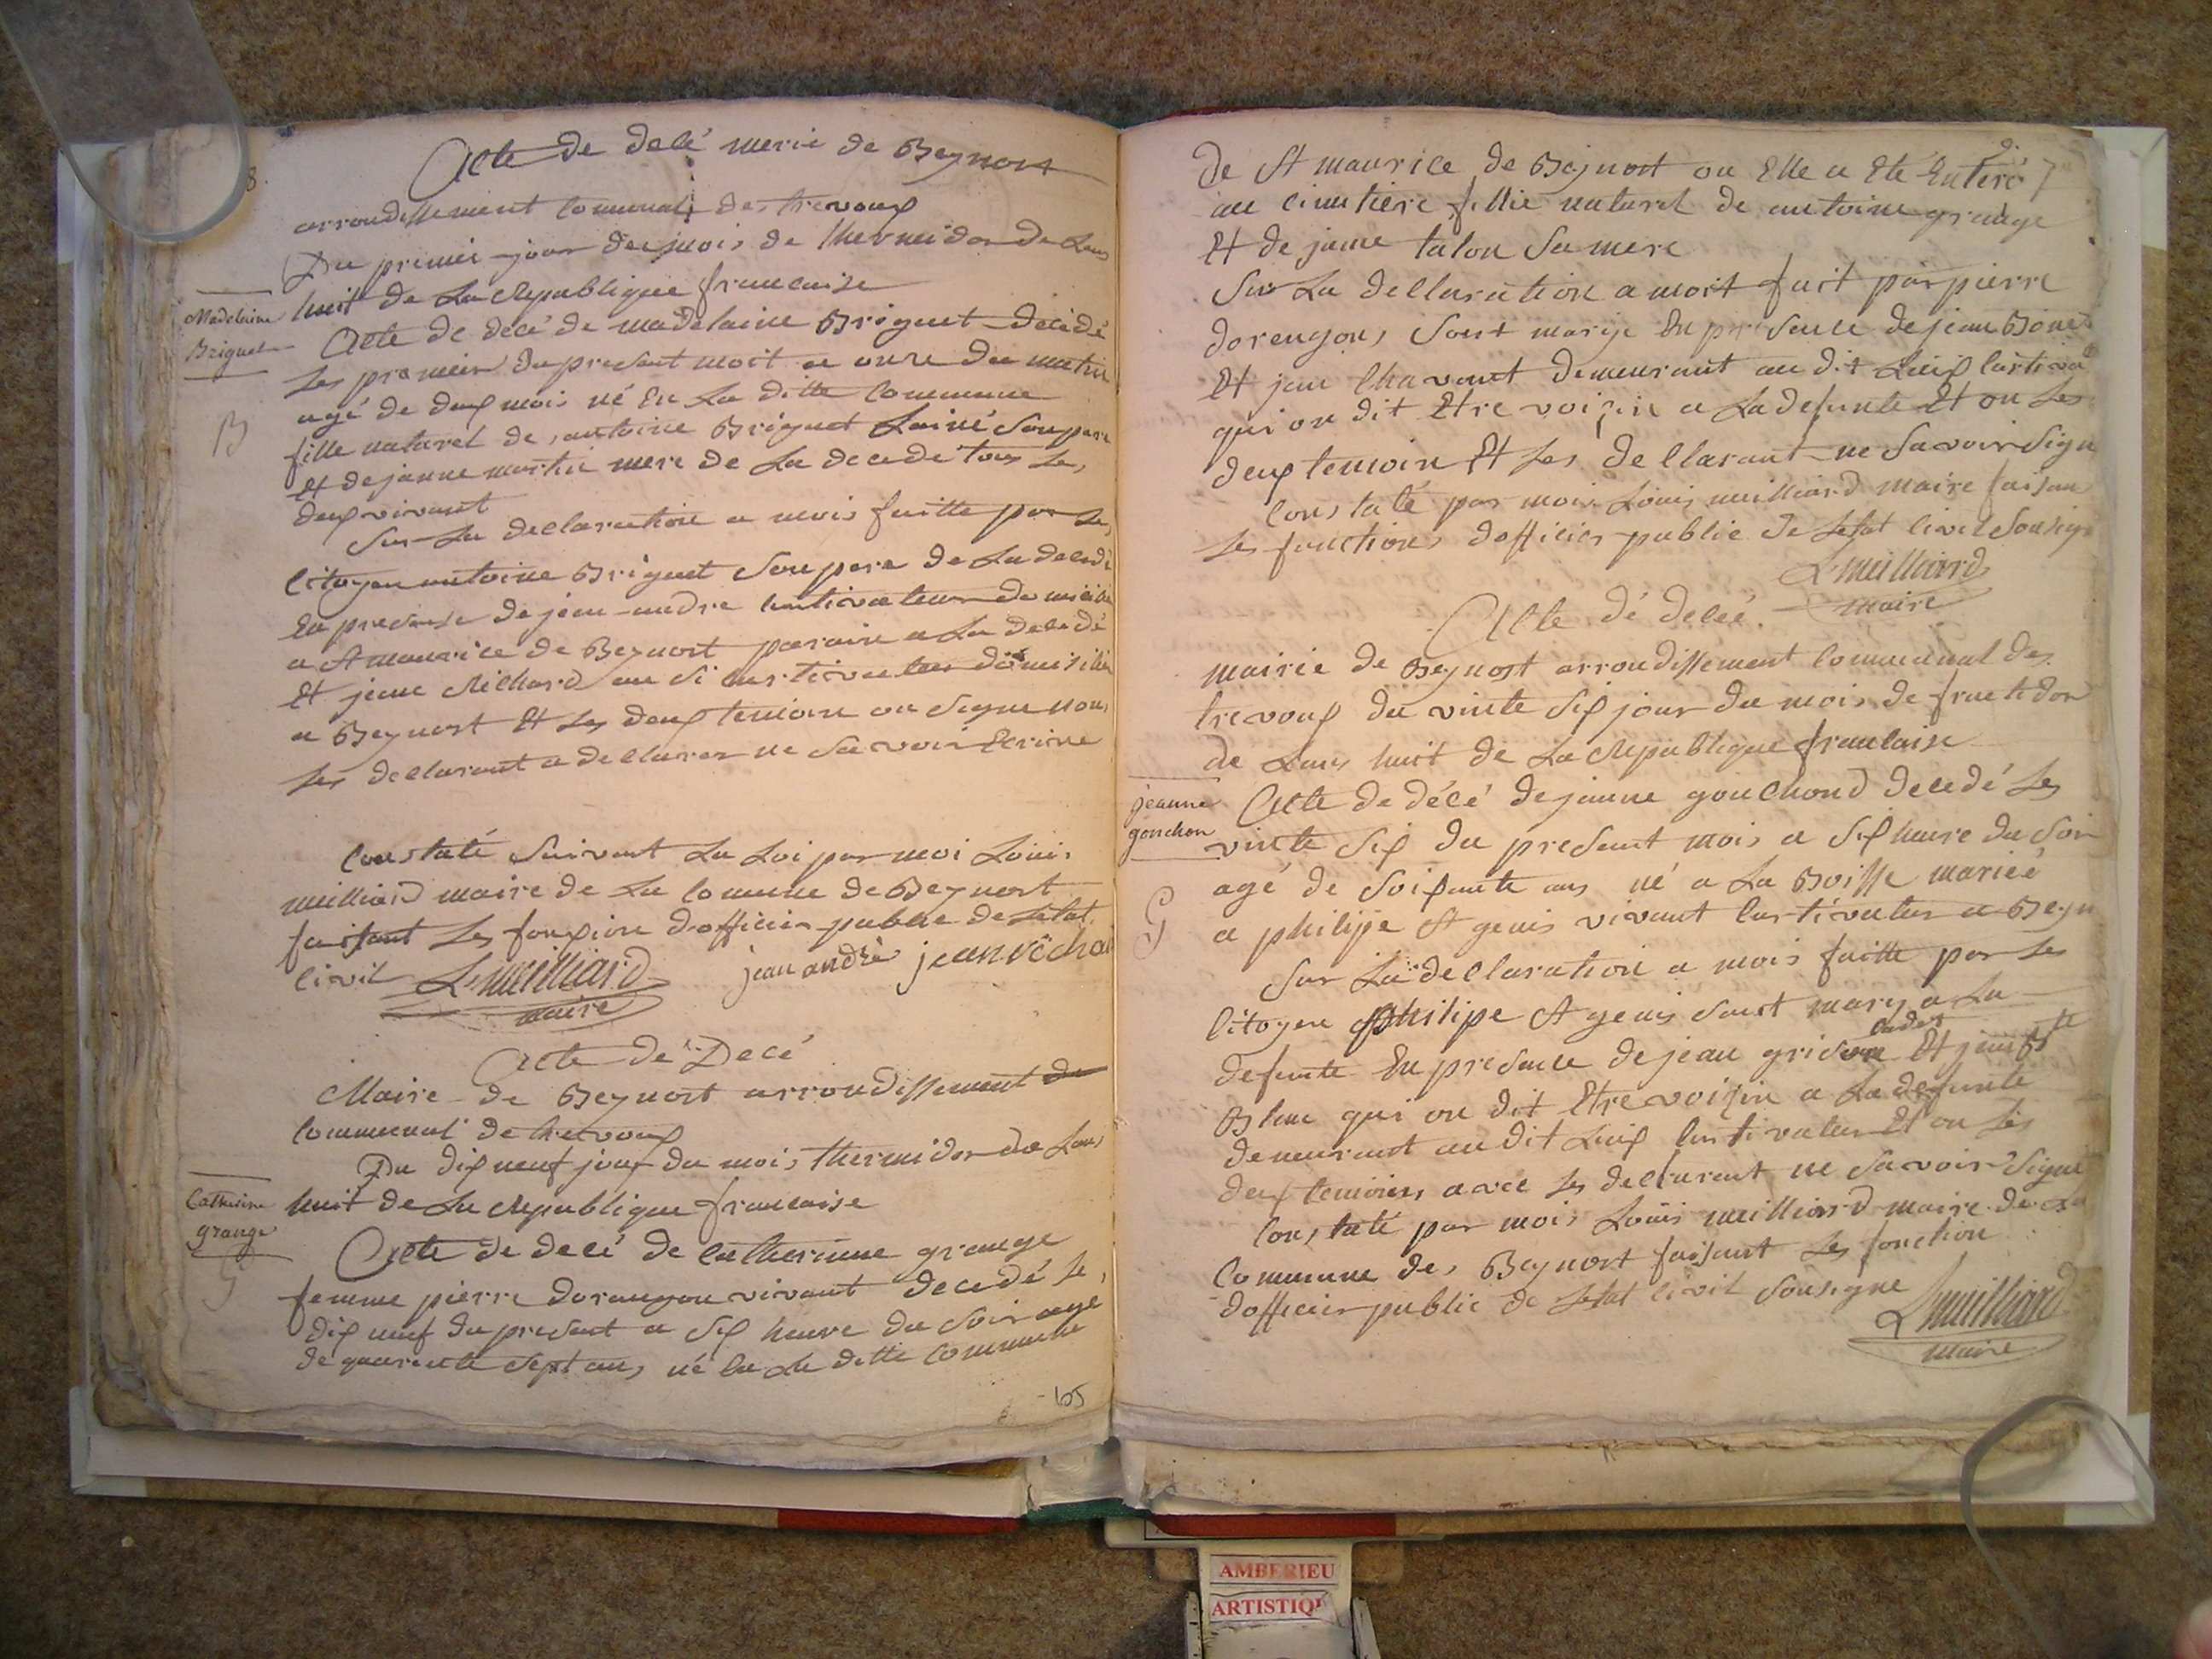 8.
Acte de decé merie de Beynost
arrondissement comunal des trevoux
Du premier jour du mois de thermidor de Lans
huit de La Republique francaise
Madeleine
Briguet
Acte de decé de madelaine Briguet decedé
Les premier du present moit a onze du matin
agé de deux mois né En La ditte Commune
B
fille naturel de antoine Briguet Lainé Son pere
Et de janne martin mere de La decede tous Les
deux vivant
Sur La declaration a mois faitte par Le
Citoyen antoine Briguet Son pere de La decedé
En presense de jean andre Cultivateur
a St maurice de Beynost paraine a La decedé
Et jean Richard au Si
a Beynost Et Les deux temoin on Signe nous
Les declarant a declarer ne Savoir Ecrire
Constaté Suivant La Loi par moi Louis
meilliard maire de La Comune de Beynost
faisant Les fonxion d'officier public de Letat
civil L meilliard jean andré
maire
Acte de Decé
Maire de Beynost arrondissement de
Communal de trevoux
Du dix neuf jour du mois thermidor de Lans
huit de La Republique francaise
Catherine
grange
G
Acte de decé de Catherinne grange
femme pierre dorangon vivant decedé Le
dix neuf du present a Six heure du Soir age
de quarente Sept ans né En La ditte Commune
105
de St maurice de Beynost ou Elle a Eté Enteré
au cimetiere fillie naturel de antoine grange
Et de janne talon Sa mere
Sur La declaration a moit fait par pierre
dorengon, Sont marye En presence de jean
Et jean Chavant demeurant au dit Luis
qui on dit Etre voizin a La defunte Et on Les
deux temoin Et Les declarant ne Savoir Sign
Constaté par mois Louis meilliard maire faisan
Les fonctions d'officier public de Letat civil Sousig
L meilliard
maire
Acte dé deceé.
mairie de Beynost arrondissement Communal des
trevoux du vinte Six jour du mois de fructidor
de Lans huit de La Republique francaise
jeanne
gonchon
Acte de décé de janne gouchond decedé Les
vinte Six du present mois a Six heure du Soir
agé de Soixante ans né a La Boisse marieé
G
a philipe St genis vivant Cultivateur a Beyn
Sur La declaration a mois faitte par Les
Citoyen philipe St genis Sont mary a La
defunte En presence de jean grison cadet Et
Blanc qui on dit Etre voizin a La defunte
demeurant au dit Luis Cultivateur Et on Les
deux temoins avec Les declarant ne Savoir Signé
Constaté par mois Louis meilliard maire de La
Commune de Beynost faisant Les fonction
d'officier public de Letat civil Sousigne
L meilliard
maire
AMBERIEU
ARTISTIQ